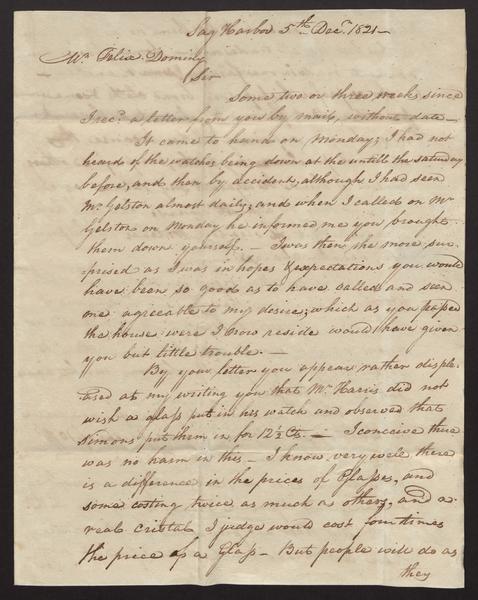 Sag Harbor 5th Decr 1821 –
Mr Felix Dominy
Sir
Some two or three weeks since
I recd a letter from you by mail, without date –
It came to hand on Monday; I had not
heard of the watches being down at the untill the saturday
before, and then by accident, although I had seen
Mr Gelston almost daily; and when I called on Mr
Gelston on Monday he informed me you brought
them down yourself. – I was then the more sur-
prised as I was in hopes & expectations you would
have been so good as to have called and seen
me agreeable to my desire; which as you passed
the house were I now reside would have given
you but little trouble. –
By your letter you appear rather disple-
ased at my writing you that Mr Harris did not
wish a glass put in his watch and observed that
Simons put them in for 12½ Cts. – I conceive there
was no harm in this – I know very well there
is a difference in the prices of Glasses, and
some costing twice as much as others, and a
real cristal I judge would cost four times
the price of a Glass – But people will do as
they